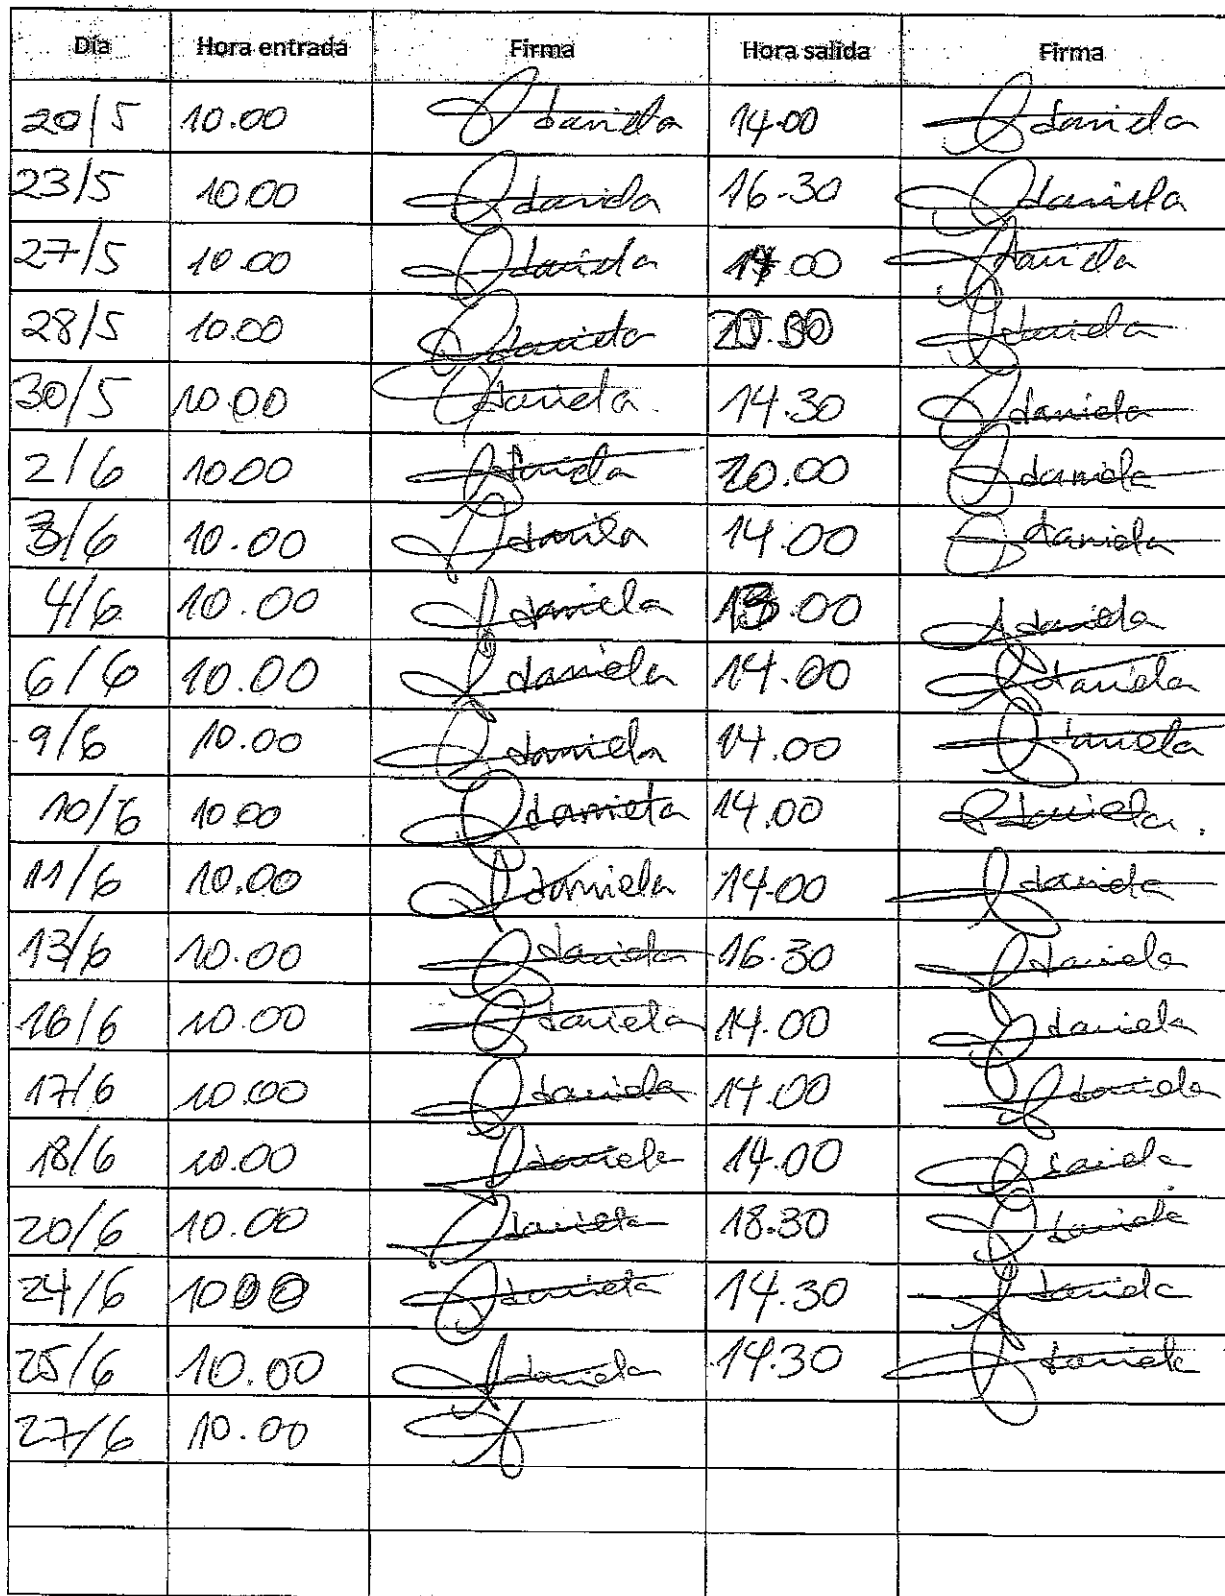 Día Hora entrada Firma Hora salida Firma
20/5 10.00 daniela 14.00 daniela
23/5 10.00 daniela 16.30 daniela
27/5 10.00 daniela daniela
28/5 10.00 daniela daniela
30/5 10.00 daniela 14.30 daniela
2/6 10.00 daniela 20.00 daniela
3/6 10.00 daniela 14.00 daniela
4/6 10.00 daniela 13.00 daniela
6/6 10.00 daniela 14.00 daniela
9/6 10.00 daniela 14.00 daniela
10/6 10.00 daniela 14.00 daniela.
11/6 10.00 daniela 14.00 daniela
13/6 10.00 daniela 16.30 daniela
16/6 10.00 daniela 14.00 daniela
17/6 10.00 daniela 14.00 daniela
18/6 10.00 daniela 14.00 daniela
20/6 10.00 daniela 18.30 daniela
24/6 10.00 daniela 14.30 daniela
25/6 10.00 daniela 14.30 daniela
27/6 10.00